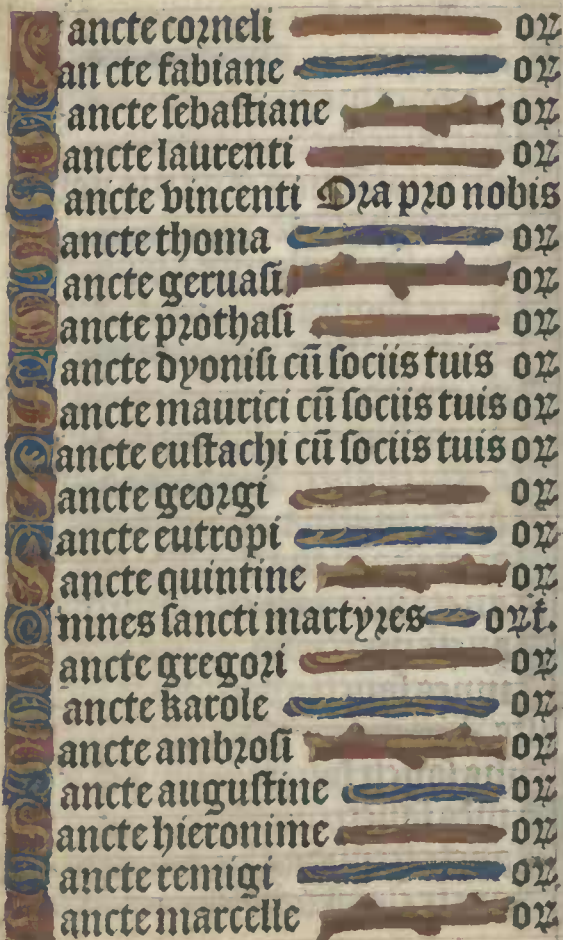 Sancte corneli oꝝ
San cte fabiane oꝝ
Sancte sebastiane oꝝ
Sancte laurenti oꝝ
Sancte vincenti Ora pro nobis
Sancte thoma oꝝ
Sancte geruasi oꝝ
Sancte prothasi oꝝ
Sancte dyonisi cū sociis tuis oꝝ
Sancte maurici cū sociis tuis oꝝ
Sancte eustachi cū sociis tuis oꝝ
Sancte georgi oꝝ
Sancte eutropi oꝝ
Sancte quintine oꝝ
Omnes sancti martyres ort.
Sancte gregori oꝝ
Sancte karole oꝝ
Sancte ambrosi oꝝ
Sancte augustine oꝝ
Sancte hieronime oꝝ
Sancte remigi oꝝ
Sancte marcelle oꝝ